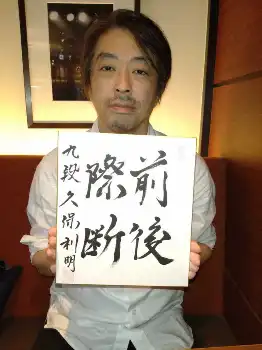 前後
際断
九段 久保利明